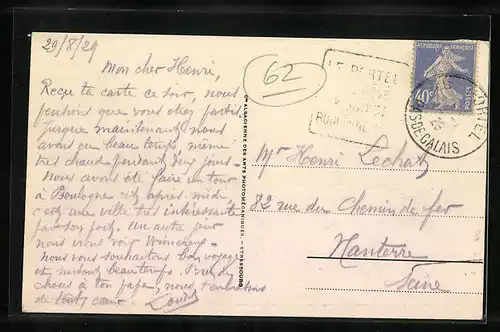 29/8/29
Mon cher Henri,
Reçu ta carte ce soir, nous
pensions que vous étiez partis
Jusque maintenant nous
avons eu beau temps, même
très chaud pendant deux jours.
Nous avons été faire un tour
à Boulogne cet après-midi
c'est une ville très intéressante
par son port. Un autre jour
nous irons voir Wimereux.
Nous vous souhaitons bon voyage
et surtout beau temps.
choses à ton papa, nous t'embrassons
de tout cœur. Louis
62
LE PORTEL
RÉPUBLIQUE FRANÇAISE
40c
POSTES
PAS DE CALAIS
Cie ALSACIENNE DES ARTS PHOTOMÉCANIQUES - STRASBOURG
Mr Henri Lechat
82 rue du Chemin de fer
Nanterre
Seine